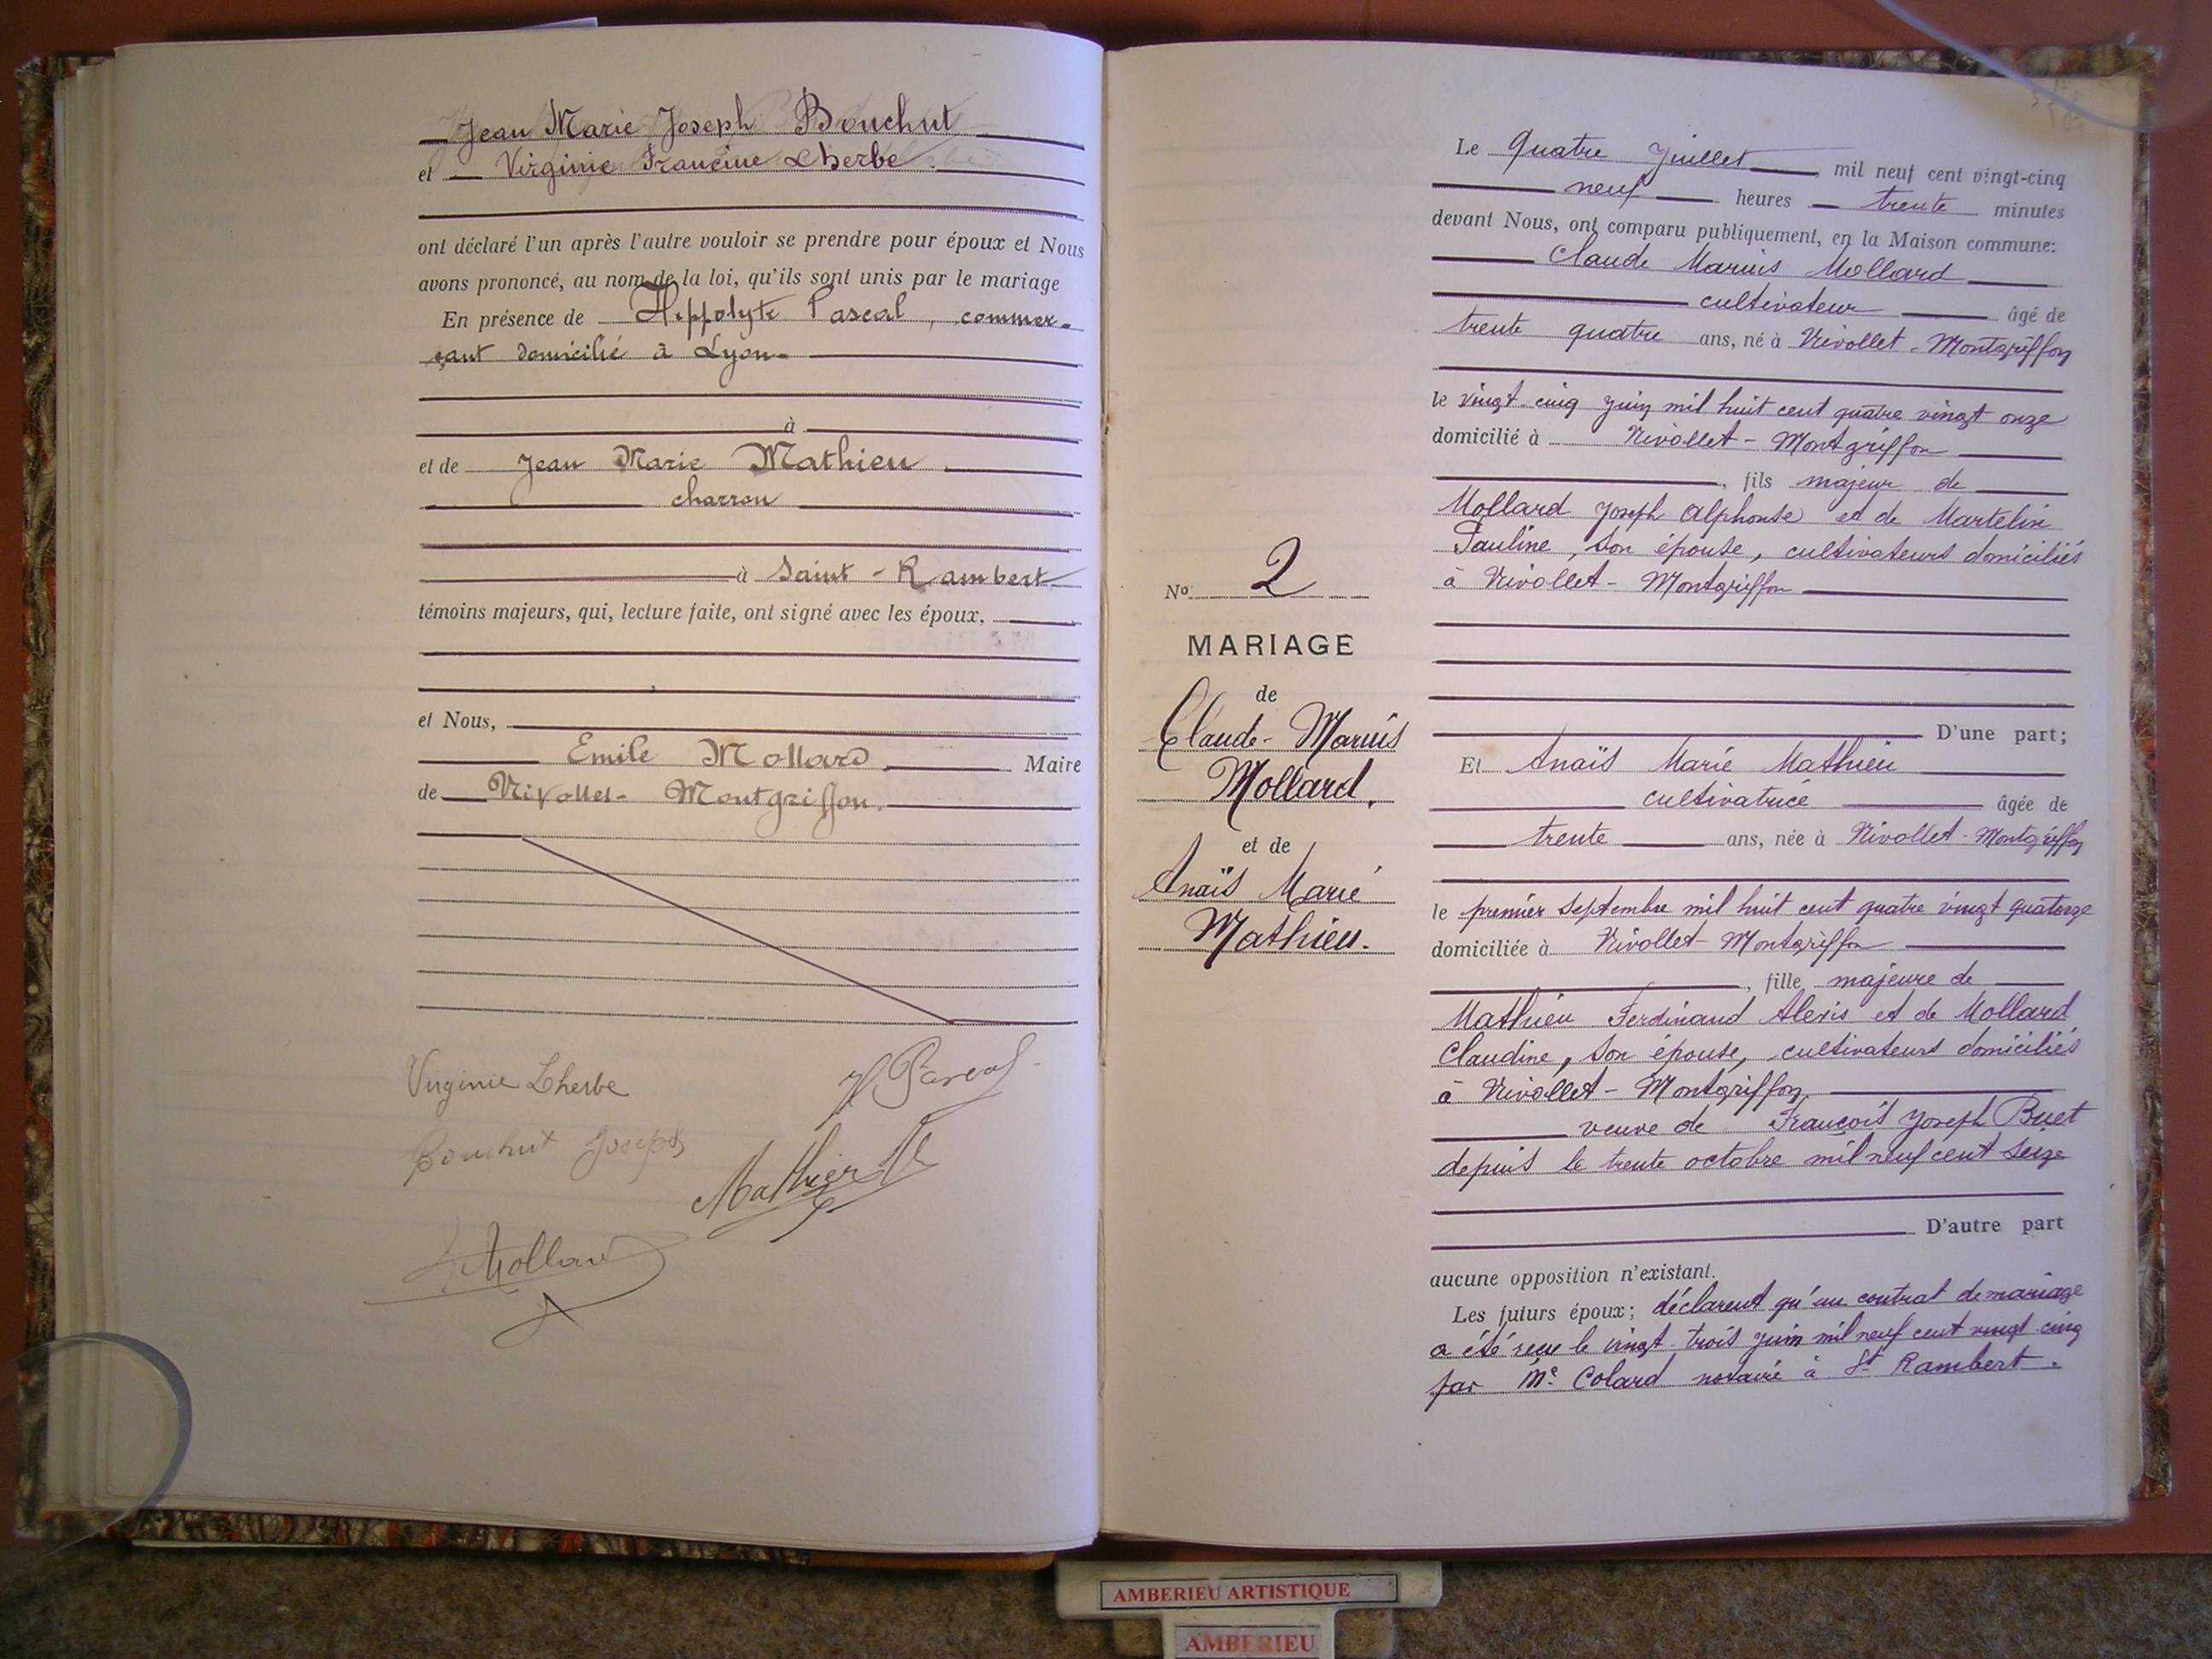 Jean Marie Joseph Bouchut
et Virginie Francine Lherbe
ont déclaré l'un après l'autre vouloir se prendre pour époux et Nous
avons prononcé, au nom de la loi, qu'ils sont unis par le mariage
En présence de Hippolyte Pascal, commer-
çant domicilié à Lyon
à
et de Jean Marie Mathieu
charron
à Saint-Rambert
témoins majeurs, qui, lecture faite, ont signé avec les époux,
et Nous,
Emile Mollard Maire
de Nivollet-Montgriffon.
Virginie Lherbe
H Pascal
Bouchut Joseph
Mathieu
Mollard
No 2
MARIAGE
de
Claude-Marius
Mollard.
et de
Anaïs Marie
Mathieu.
Le quatre Juillet, mil neuf cent vingt-cinq
neuf heures trente minutes
devant Nous, ont comparu publiquement, en la Maison commune:
Claude Marius Mollard
cultivateur âgé de
trente quatre ans, né à Nivollet-Montgriffon
le vingt-cinq juin mil huit cent quatre vingt onze
domicilié à Nivollet-Montgriffon
, fils majeur de
Mollard Joseph Alphonse et de Martelin
Pauline, son épouse, cultivateurs domiciliés
à Nivollet-Montgriffon
D'une part;
Et Anaïs Marie Mathieu
cultivatrice âgée de
trente ans, née à Nivollet-Montgriffon
le premier septembre mil huit cent quatre vingt quatorze
domiciliée à Nivollet-Montgriffon
, fille majeure de
Mathieu Ferdinand Alexis et de Mollard
Claudine, son épouse, cultivateurs domiciliés
à Nivollet-Montgriffon,
veuve de François Joseph Buet
depuis le trente octobre mil neuf cent seize
D'autre part
aucune opposition n'existant.
Les futurs époux; déclarent qu'un contrat de mariage
a été reçu le vingt-trois juin mil neuf cent vingt-cinq
par Me Colard notaire à St Rambert.
AMBERIEU ARTISTIQUE
AMBERIEU